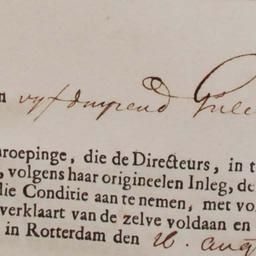 n vyfduysend Gulde
aroepinge, die de Directeurs, in t
, volgens haar origineelen Inleg, de
lie Conditie aan te nemen, met vo
verklaart van de zelve voldaan en
in Rotterdam den 16. aug